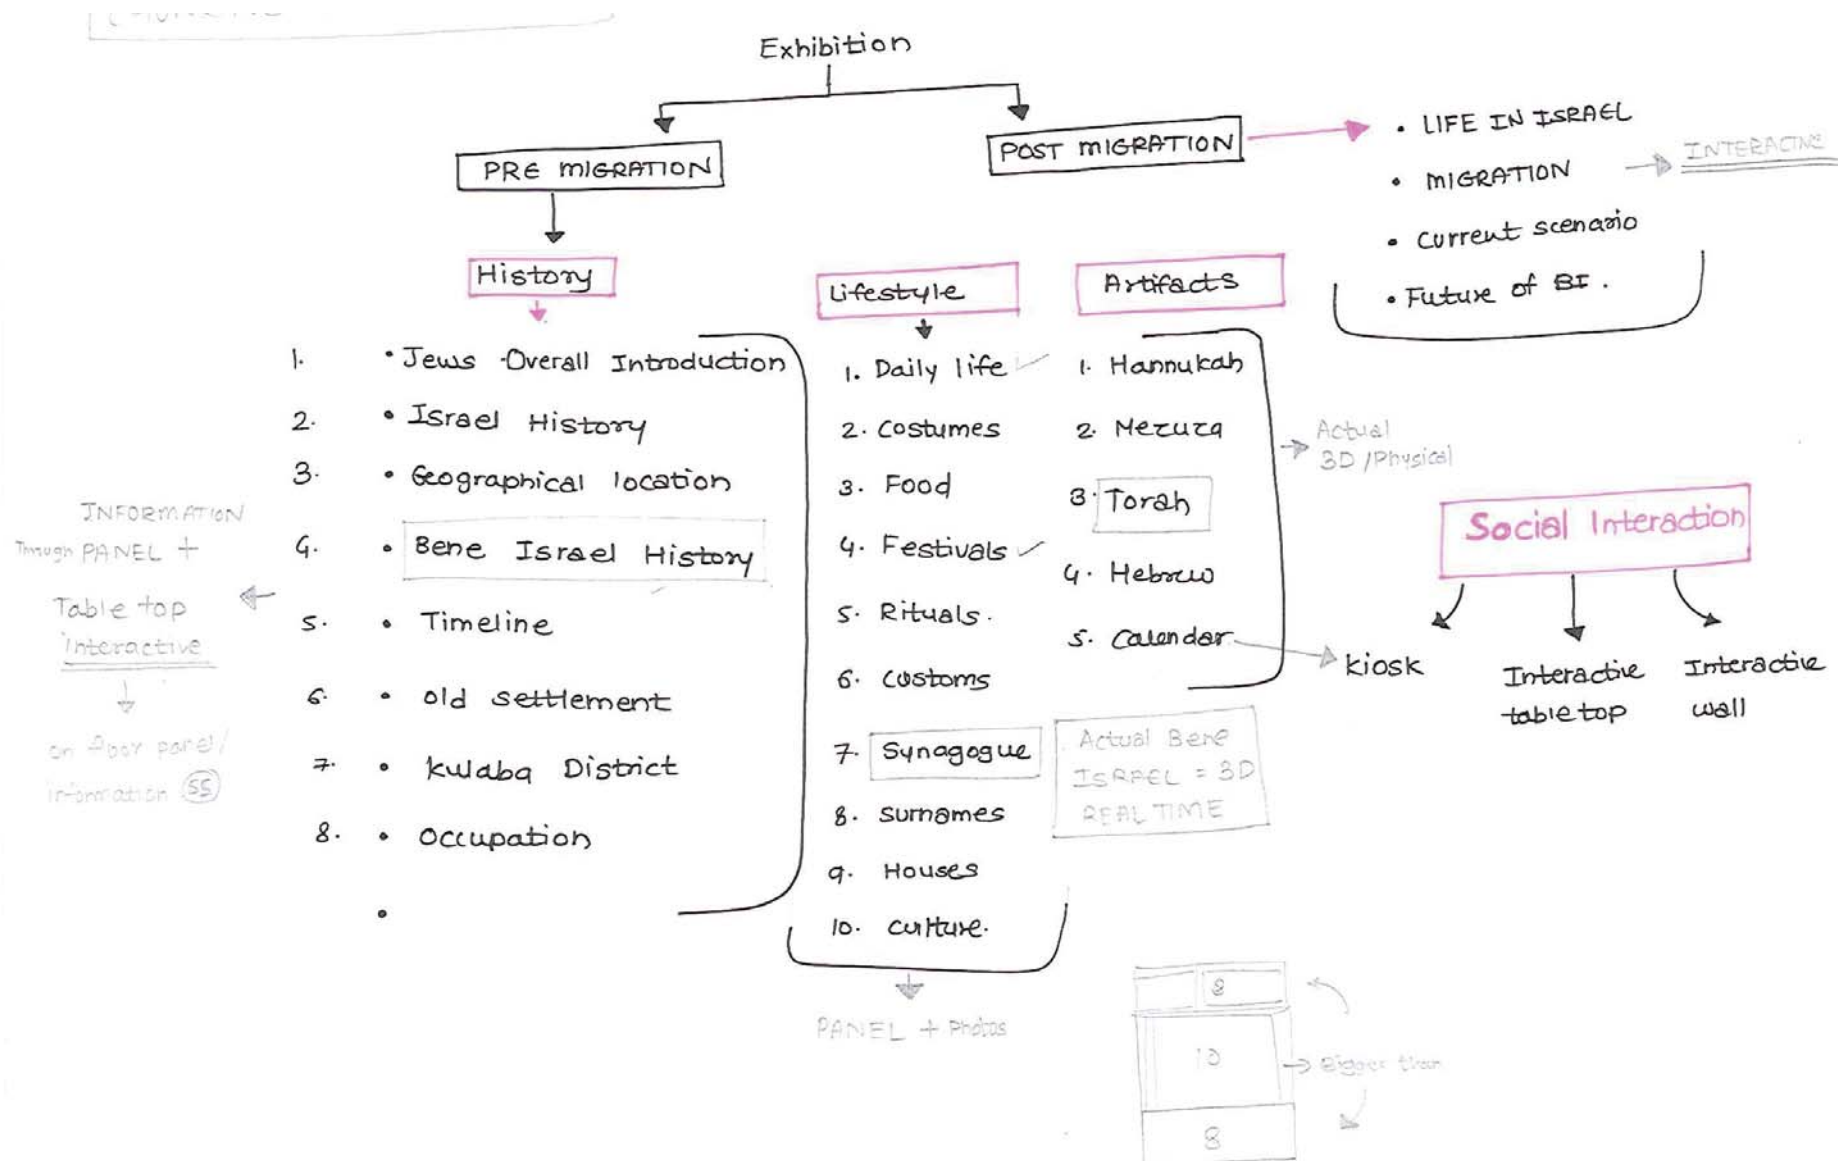 Exhibition
PRE MIGRATION
POST MIGRATION
• LIFE IN ISRAEL
• MIGRATION
INTERACTIVE
• Current scenario
• Future of BI.
History
1. • Jews Overall Introduction
2. • Israel History
3. • Geographical location
4. • Bene Israel History
5. • Timeline
6. • old settlement
7. • Kulaba District
8. • Occupation
•
INFORMATION
Through PANEL +
Table top
interactive
on floor panel/
information SS
Lifestyle
1. Daily life
2. Costumes
3. Food
4. Festivals
5. Rituals.
6. Customs
7. Synagogue
8. Surnames
9. Houses
10. Culture.
PANEL + Photos
Artifacts
1. Hannukah
2. Mezuza
3. Torah
4. Hebrew
5. Calendar
Actual
3D/Physical
Actual Bene
ISRAEL = 3D
REAL TIME
Social Interaction
kiosk
Interactie
table top
Interactie
wall
8
10
Bigger than
8